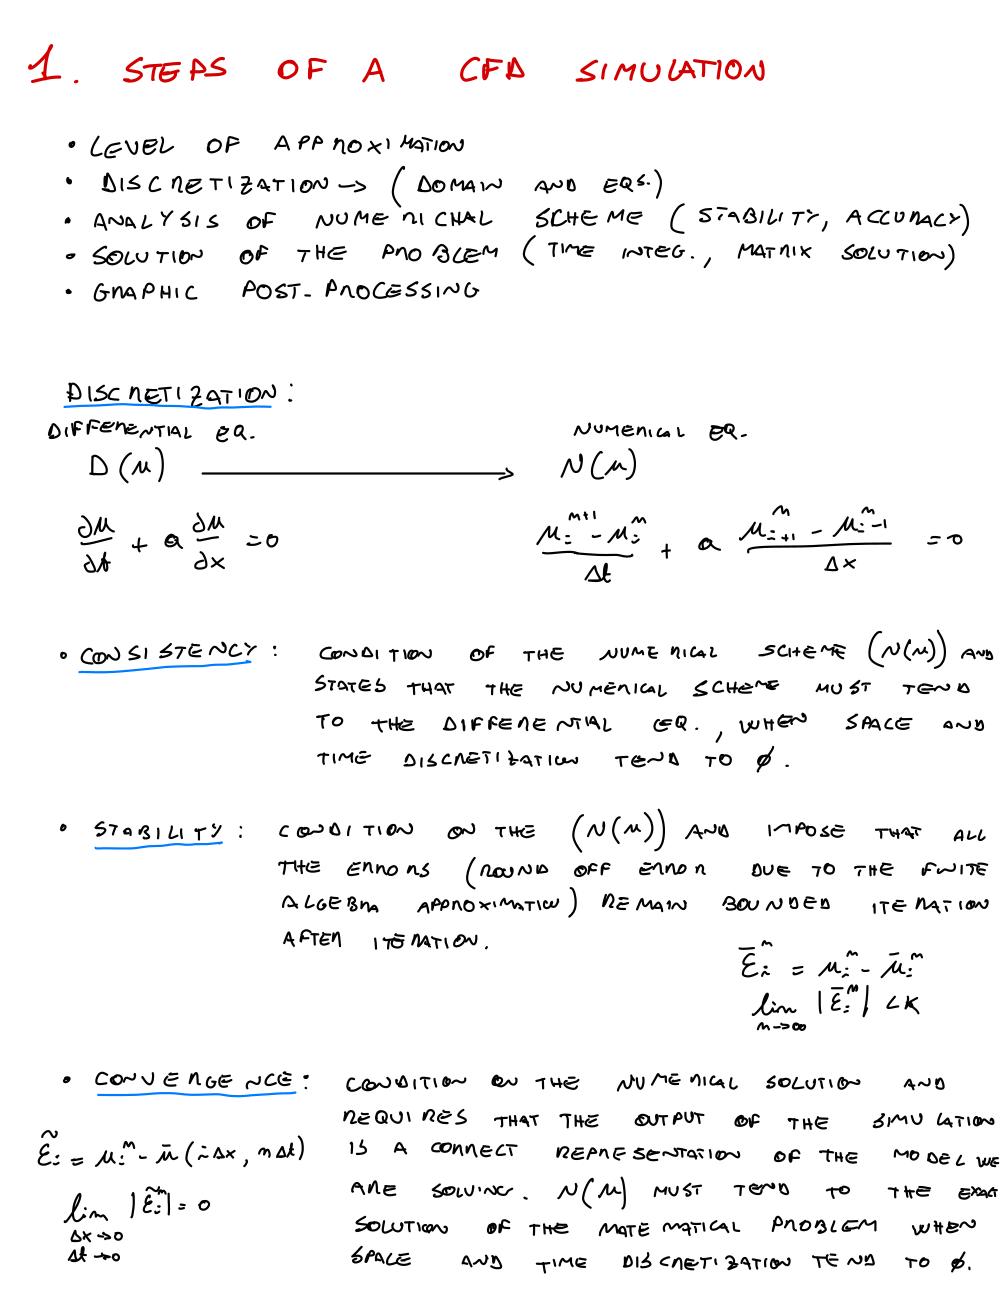 1. STEPS OF A CFD SIMULATION
• LEVEL OF APPROXIMATION
• DISCRETIZATION → (DOMAIN AND EQS.)
• ANALYSIS OF NUMERICHAL SCHEME (STABILITY, ACCURACY)
• SOLUTION OF THE PROBLEM (TIME INTEG., MATRIX SOLUTION)
• GRAPHIC POST-PROCESSING
DISCRETIZATION:
DIFFERENTIAL EQ. NUMERICAL EQ.
D(u) → N(u)
∂u/∂t + a ∂u/∂x = 0 (u_i^{n+1} - u_i^n)/Δt + a (u_{i+1}^n - u_{i-1}^n)/Δx = 0
• CONSISTENCY: CONDITION OF THE NUMERICAL SCHEME (N(u)) AND
STATES THAT THE NUMERICAL SCHEME MUST TEND
TO THE DIFFERENTIAL EQ., WHEN SPACE AND
TIME DISCRETIZATION TEND TO ∅.
• STABILITY: CONDITION ON THE (N(u)) AND IMPOSE THAT ALL
THE ERRORS (ROUND OFF ERROR DUE TO THE FINITE
ALGEBRA APPROXIMATION) REMAIN BOUNDED ITERATION
AFTER ITERATION.
ε̄_i^n = u_i^n - ū_i^n
lim_{n→∞} |ε̄_i^n| < K
• CONVERGENCE: CONDITION ON THE NUMERICAL SOLUTION AND
REQUIRES THAT THE OUTPUT OF THE SIMULATION
IS A CORRECT REPRESENTATION OF THE MODEL WE
ARE SOLVING. N(u) MUST TEND TO THE EXACT
SOLUTION OF THE MATEMATICAL PROBLEM WHEN
SPACE AND TIME DISCRETIZATION TEND TO ∅.
ε̃_i = u_i^n - ū(iΔx, nΔt)
lim_{Δx→0, Δt→0} |ε̃_i^n| = 0